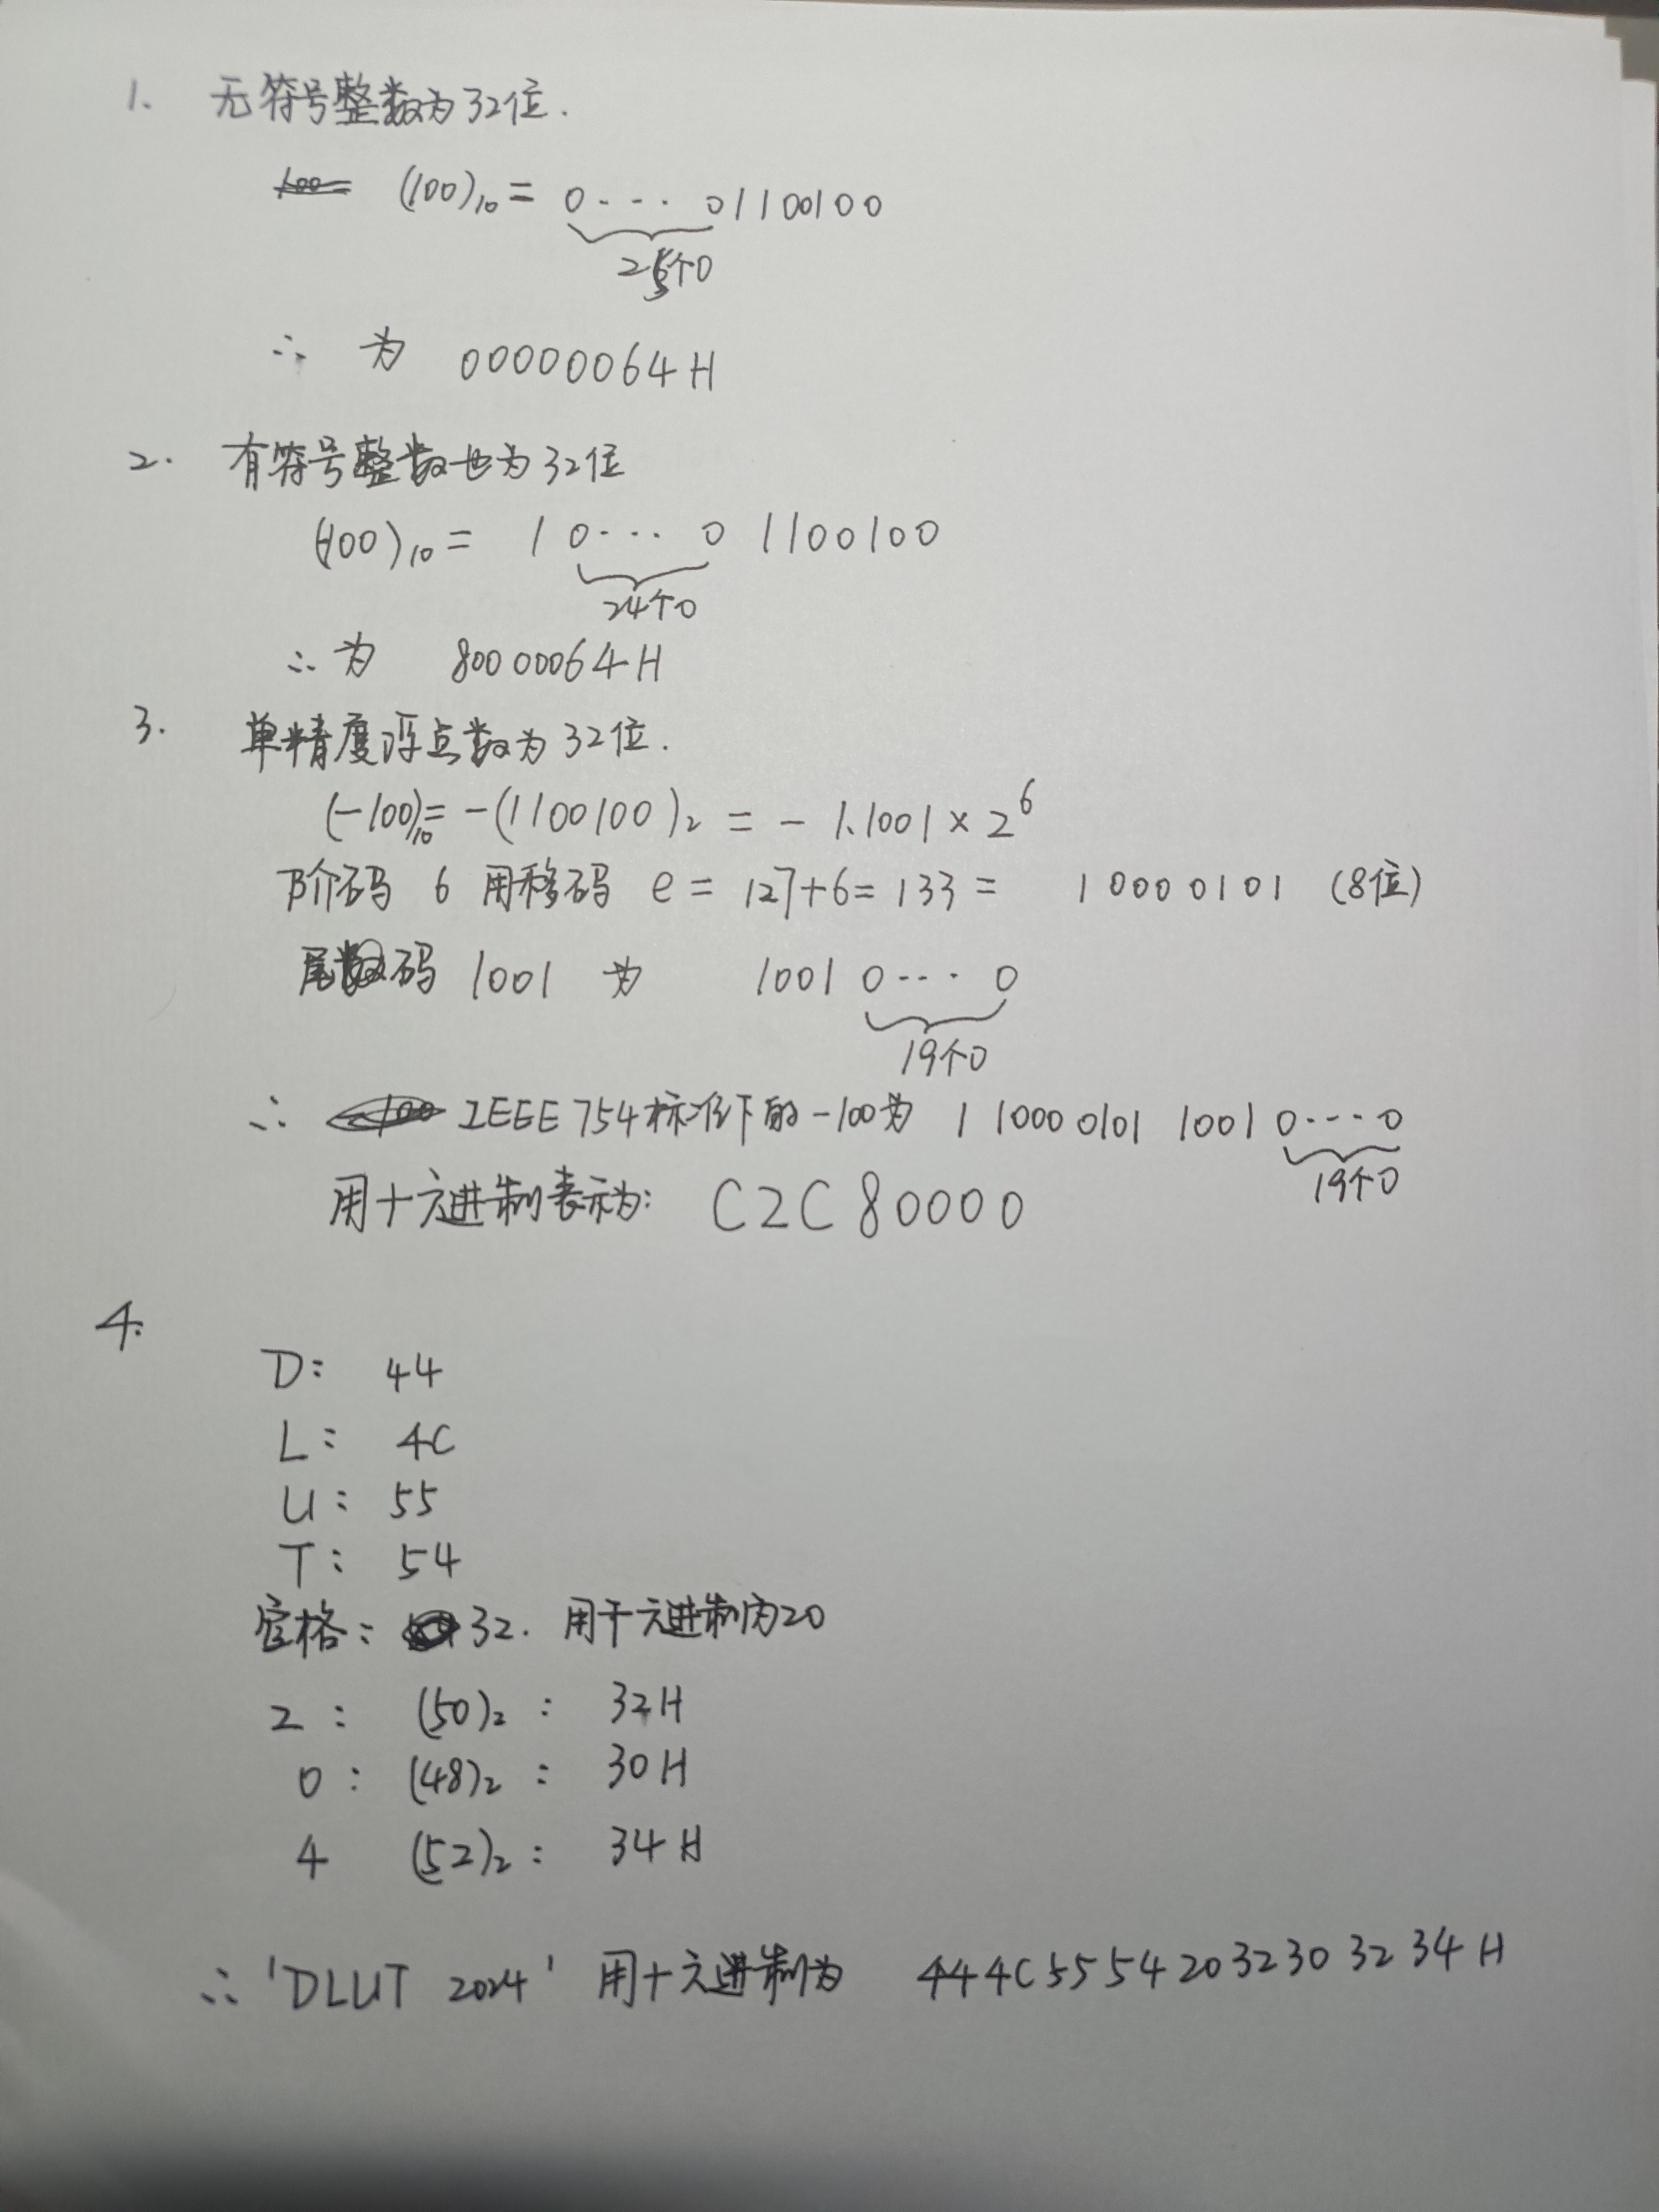 1. 无符号整数为32位.
(100)₁₀ = 0···01100100
25个0
∴ 为 00000064H
2. 有符号整数也为32位
(-100)₁₀ = 1 0···0 1100100
24个0
∴ 为 80000064H
3. 单精度浮点数为32位.
(-100)₁₀ = -(1100100)₂ = - 1.1001 × 2⁶
阶码 6 用移码 e = 127+6 = 133 = 10000101 (8位)
尾数码 1001 为 1001 0···0
19个0
∴ IEEE 754标准下的 -100为 1 10000101 1001 0····0
19个0
用十六进制表示为: C2C80000
4.
D: 44
L: 4C
U: 55
T: 54
空格: 32. 用十六进制为20
2: (50)₂: 32H
0: (48)₂: 30H
4 (52)₂: 34H
∴ 'DLUT 2024' 用十六进制为 444C55542032303234H